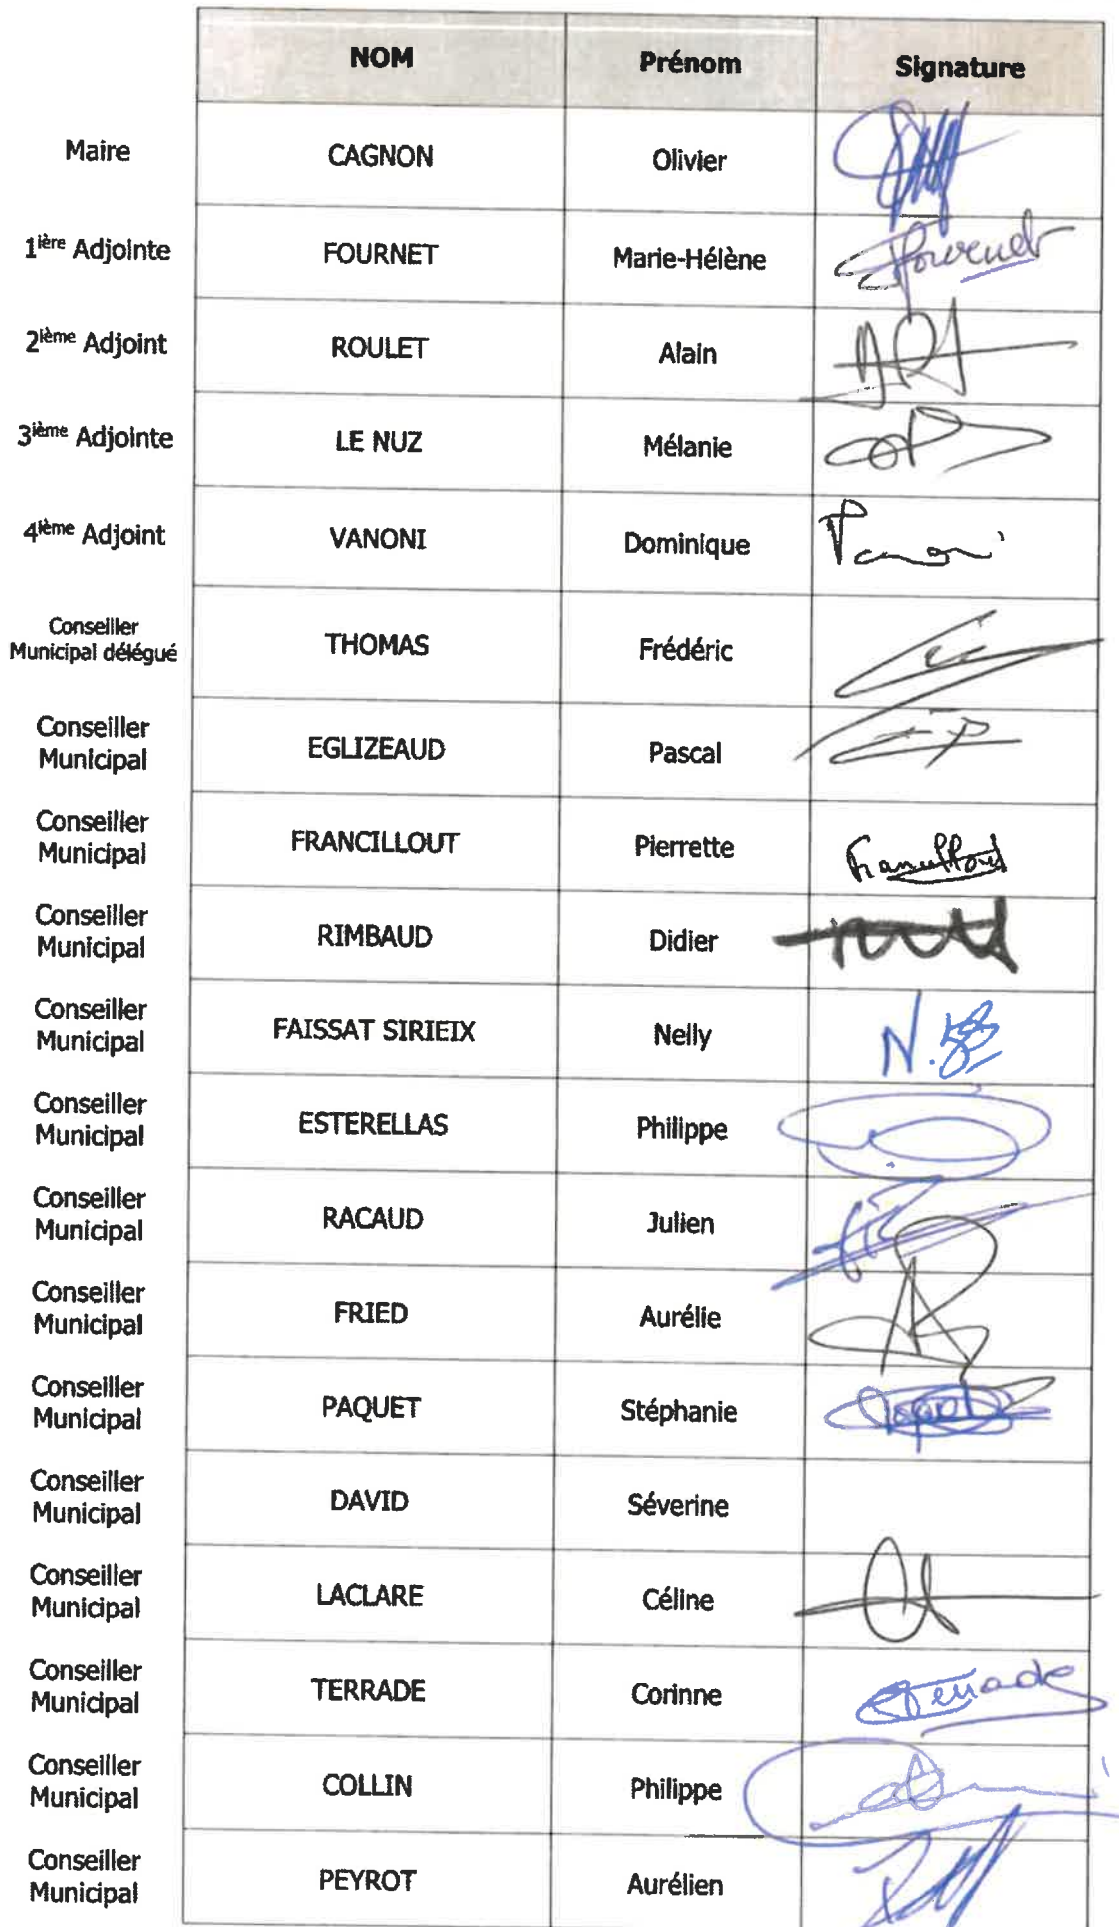 NOM Prénom Signature
Maire CAGNON Olivier
1ière Adjointe FOURNET Marie-Hélène Fournet
2ième Adjoint ROULET Alain
3ième Adjointe LE NUZ Mélanie
4ième Adjoint VANONI Dominique Vanoni
Conseiller
Municipal délégué THOMAS Frédéric
Conseiller
Municipal EGLIZEAUD Pascal
Conseiller
Municipal FRANCILLOUT Pierrette Francillout
Conseiller
Municipal RIMBAUD Didier
Conseiller
Municipal FAISSAT SIRIEIX Nelly
Conseiller
Municipal ESTERELLAS Philippe
Conseiller
Municipal RACAUD Julien
Conseiller
Municipal FRIED Aurélie
Conseiller
Municipal PAQUET Stéphanie
Conseiller
Municipal DAVID Séverine
Conseiller
Municipal LACLARE Céline
Conseiller
Municipal TERRADE Corinne Terrade
Conseiller
Municipal COLLIN Philippe
Conseiller
Municipal PEYROT Aurélien